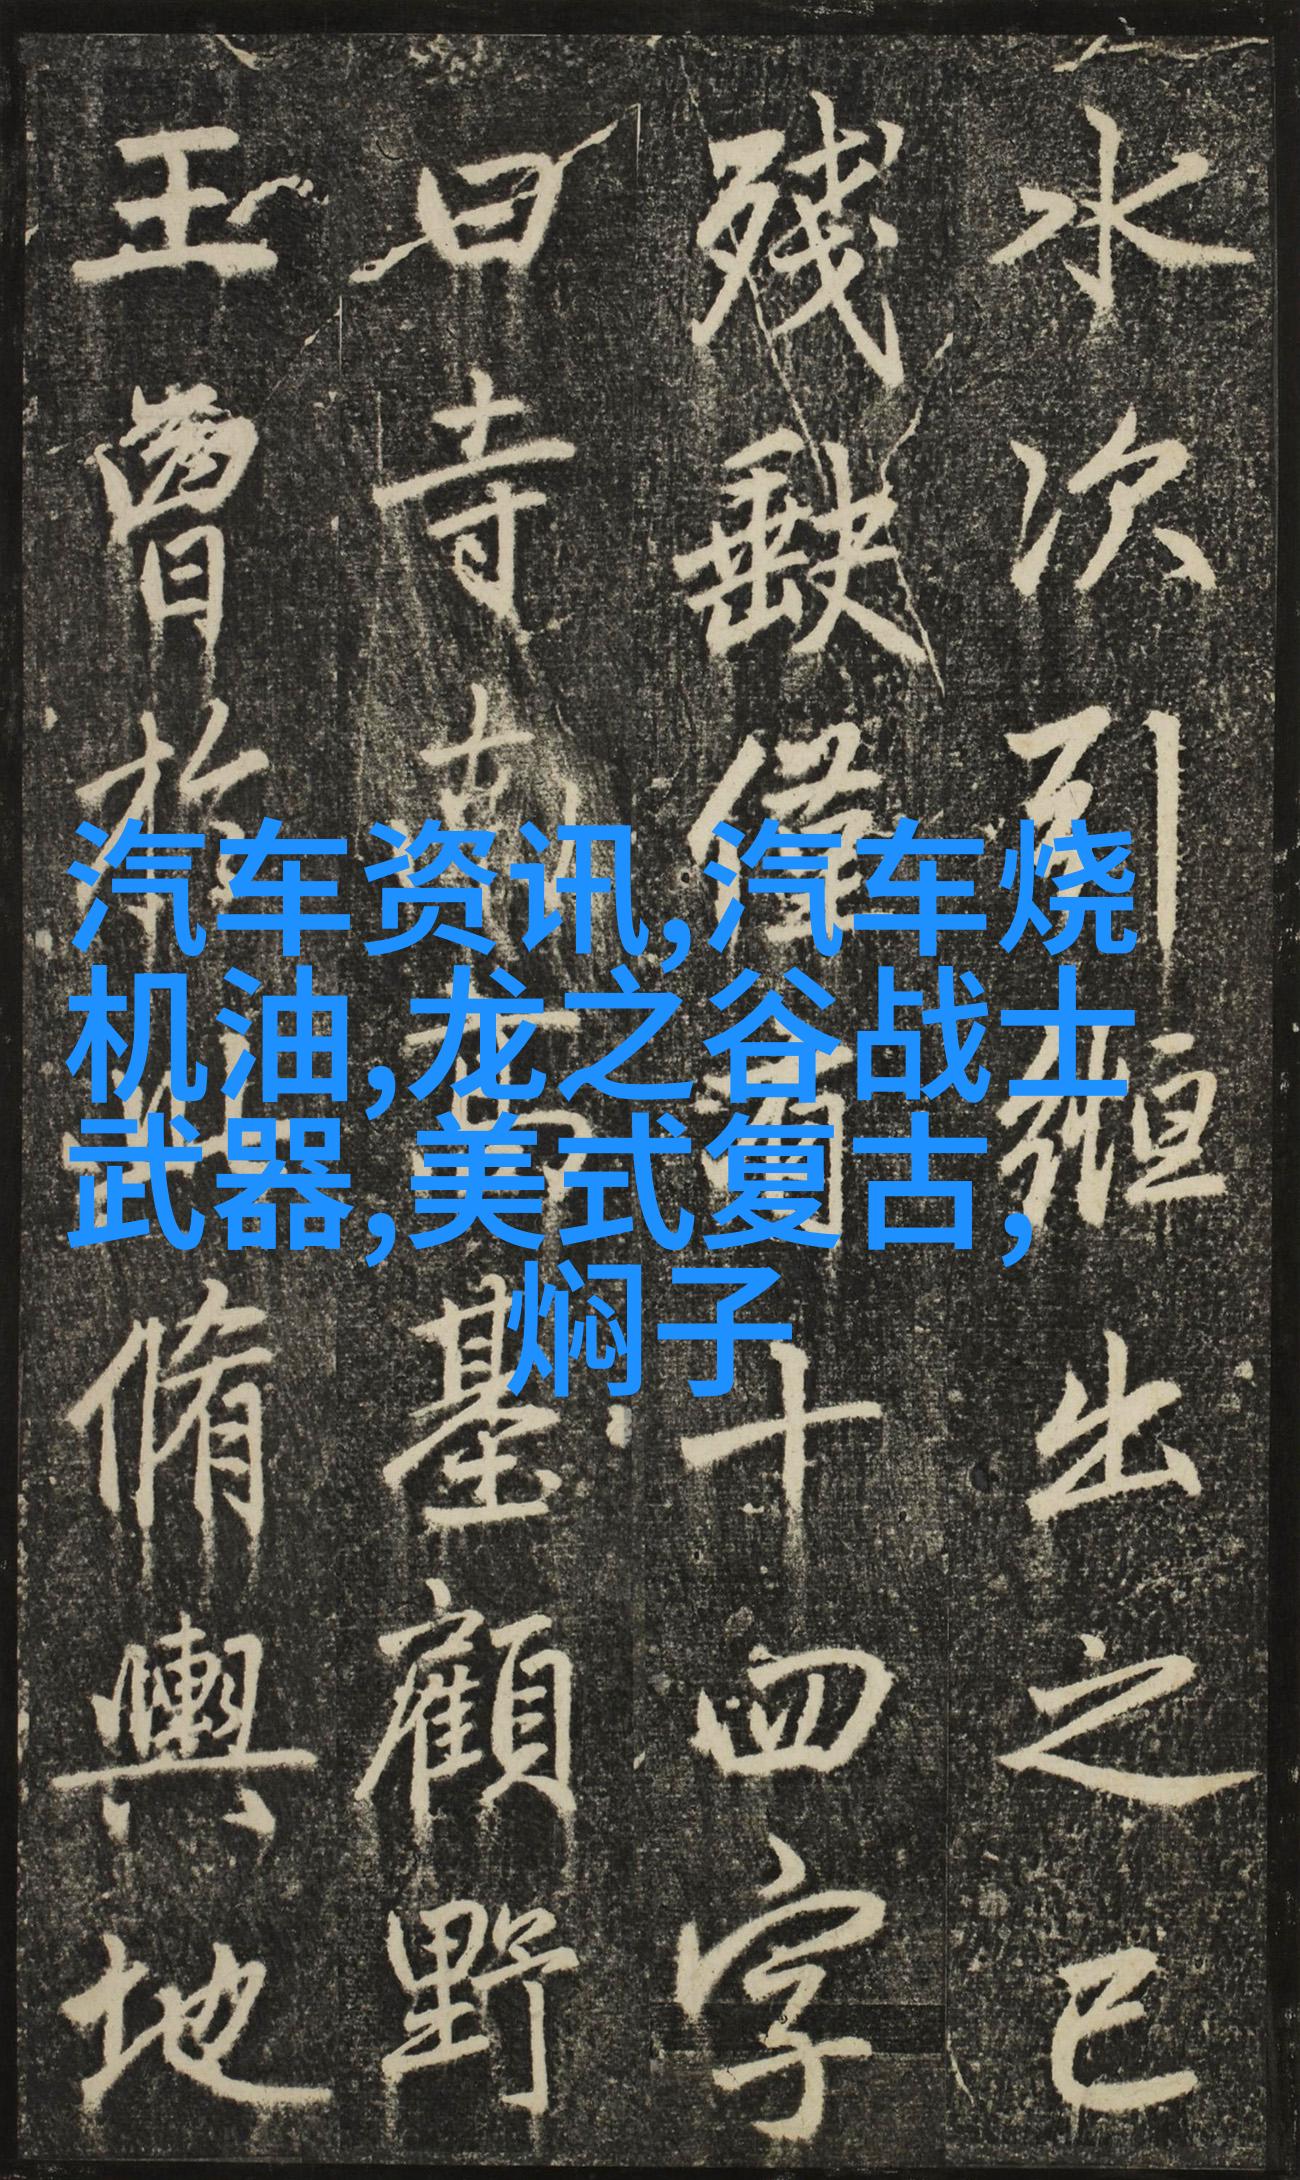 水次引絙出之已
殘缺僅有十四字
曰寺南高基顧野
王曾於此脩輿地
汽车资讯,汽车烧
机油,龙之谷战士
武器,美式复古,
焖子